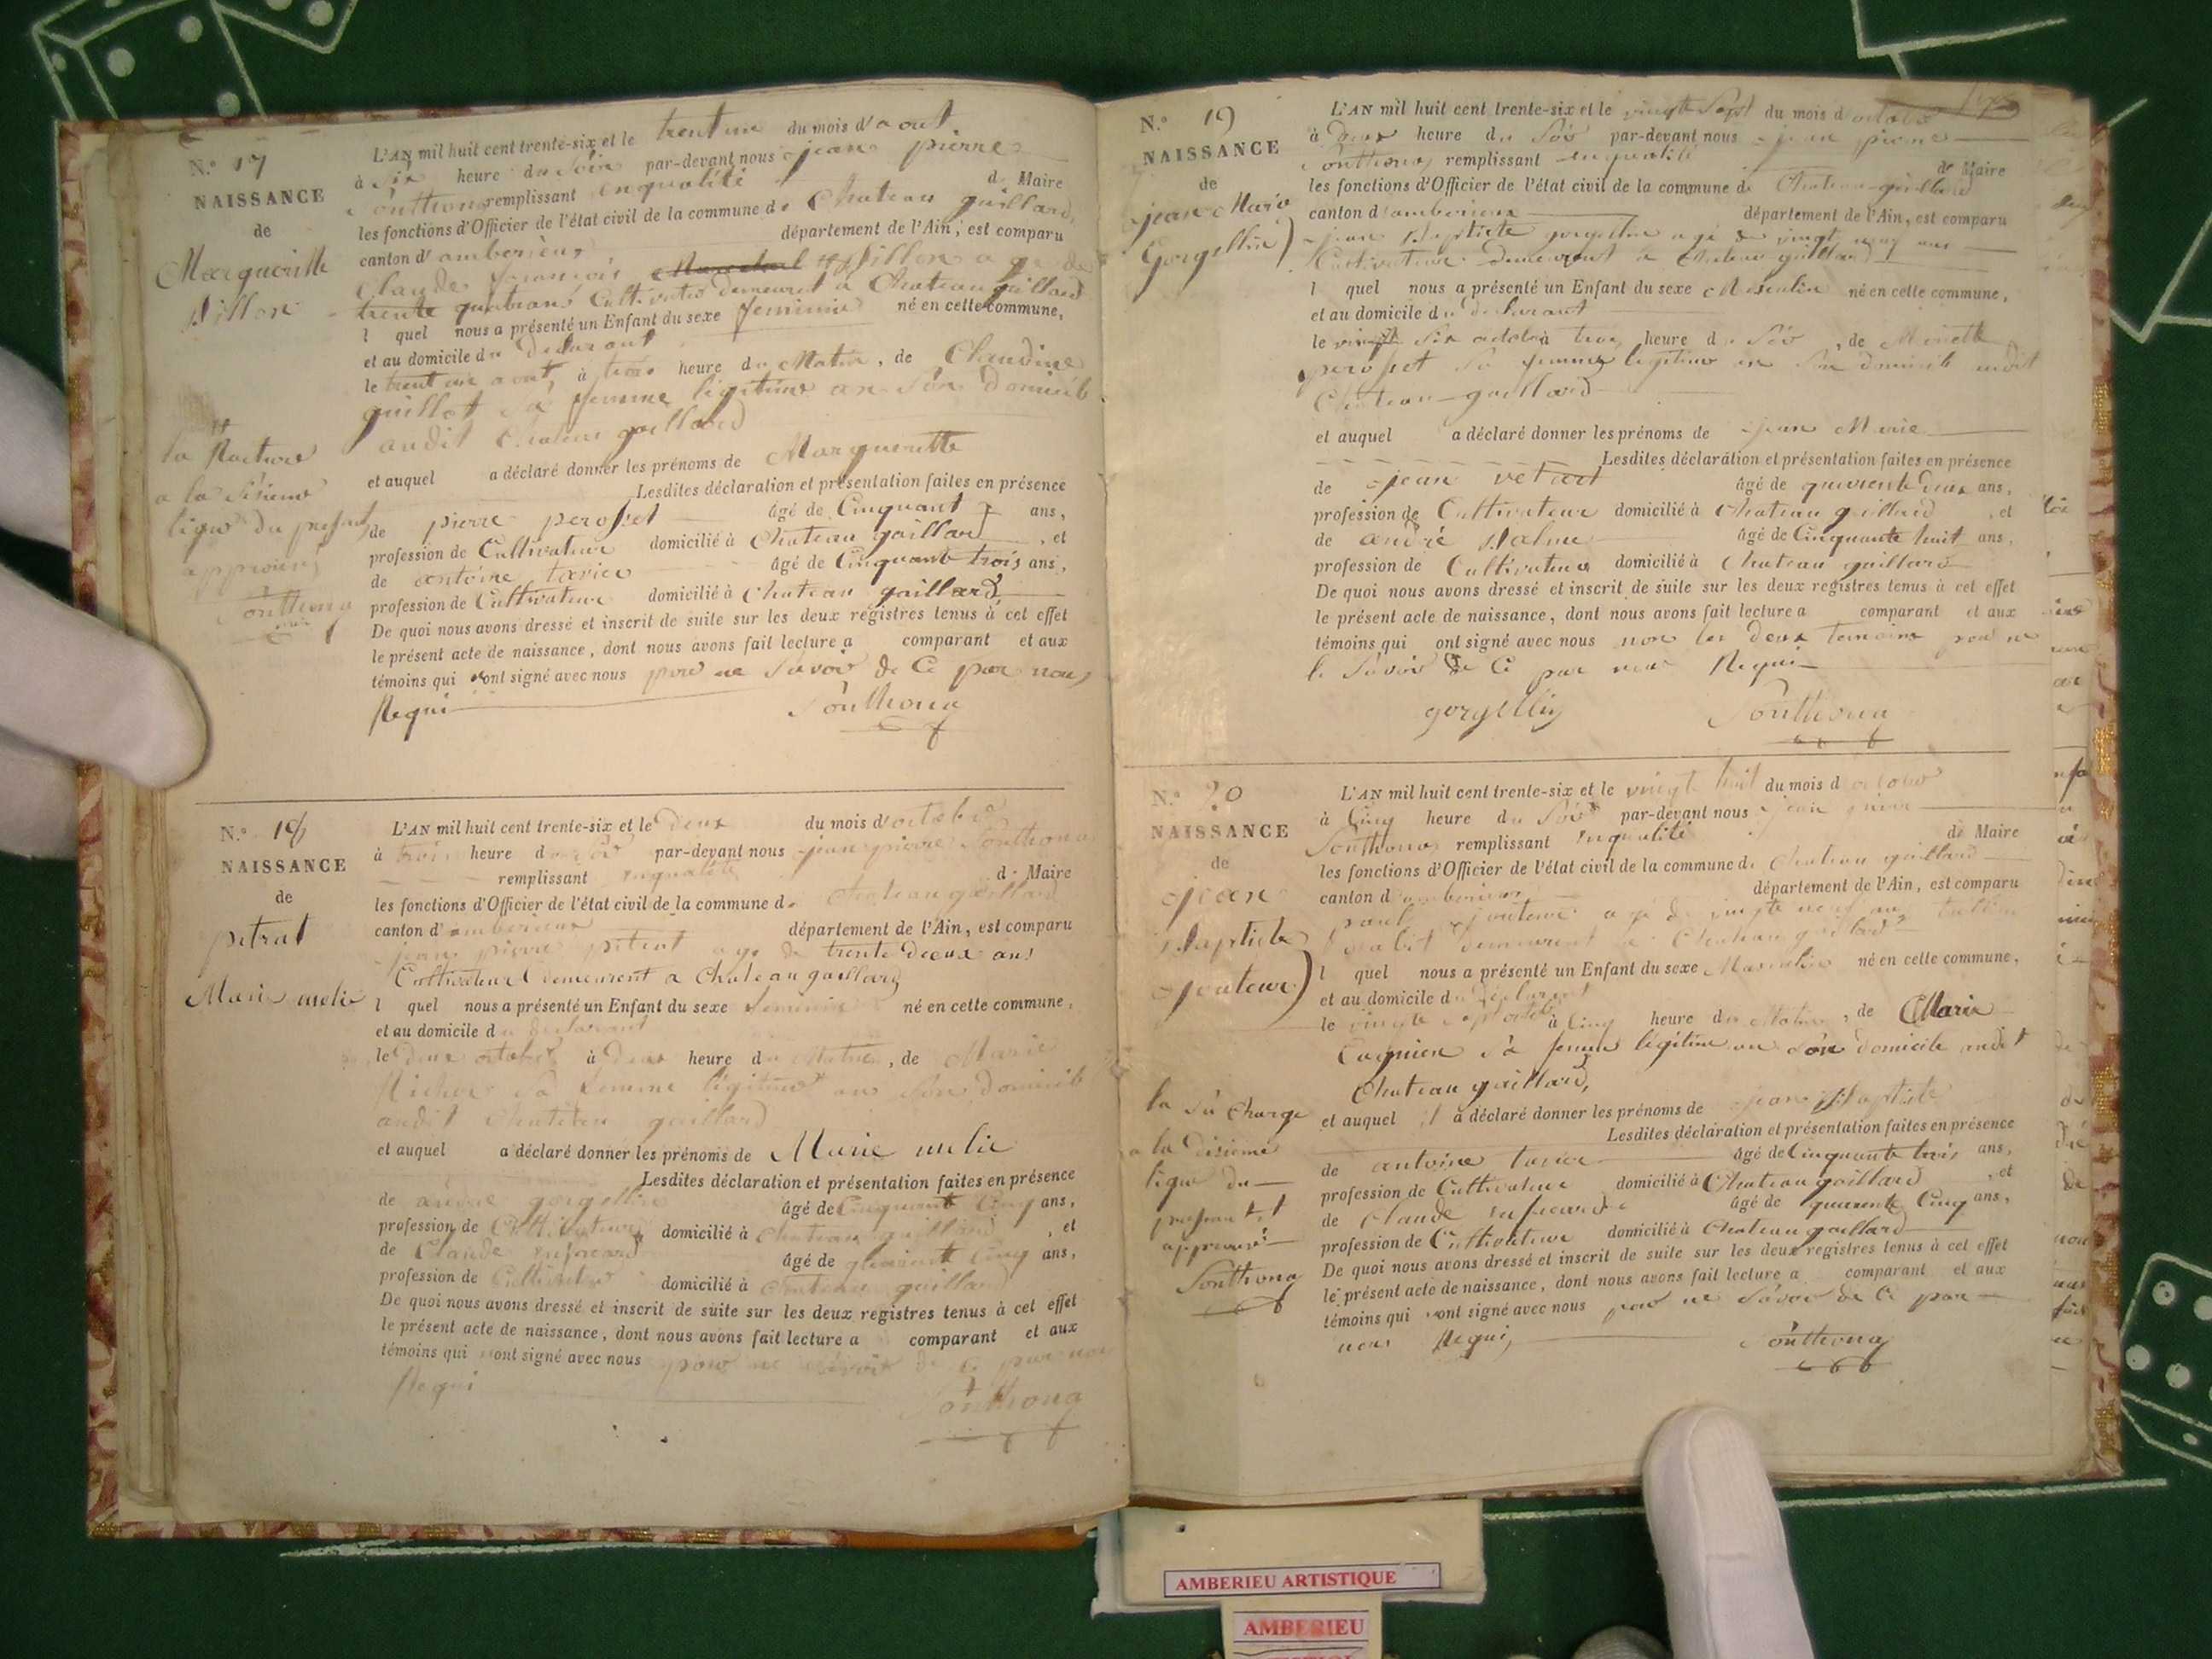 N.º 17
NAISSANCE
de
Margueritte
Billon
L'AN mil huit cent trente-six et le trent un du mois d'aout
à six heure du Soir par-devant nous jean pierre
Southona remplissant enqualité de Maire
les fonctions d'Officier de l'état civil de la commune de Chateau gaillard
canton d'amberieux département de l'Ain, est comparu
Claude françois Billon agé de
trente quatre ans Cultivateur demeurant a Chateau gaillard
l quel nous a présenté un Enfant du sexe feminin né en cette commune,
et au domicile du Declarant
le trent un aout, à trois heure du Matin, de Claudine
guillot sa femme légitime en son domicile
audit Chateau gaillard
et auquel a déclaré donner les prénoms de Margueritte
Lesdites déclaration et présentation faites en présence
de pierre perosset âgé de Cinquant ans,
profession de Cultivateur domicilié à Chateau gaillard, et
de antoine tavier âgé de Cinquante trois ans,
profession de Cultivateur domicilié à Chateau gaillard
De quoi nous avons dressé et inscrit de suite sur les deux registres tenus à cet effet
le présent acte de naissance, dont nous avons fait lecture a comparant et aux
témoins qui ont signé avec nous pour ne Savoir de Ce par nous
Requi
Southona
la Rature
a la Sisieme
ligne du
approuvé
Southona
N.º 18
NAISSANCE
de
petrat
Marie melie
L'AN mil huit cent trente-six et le deux du mois d'octobre
à trois heure du soir par-devant nous jean pierre Southona
remplissant enqualité de Maire
les fonctions d'Officier de l'état civil de la commune de Chateau gaillard
canton d'amberieux département de l'Ain, est comparu
jean pierre petrat agé de trente deux ans
Cultivateur demeurant a Chateau gaillard
l quel nous a présenté un Enfant du sexe feminin né en cette commune,
et au domicile du declarant
le deux octobre à deux heure du Matin, de Marie
sa femme légitime en son domicile
audit Chateau gaillard
et auquel a déclaré donner les prénoms de Marie melie
Lesdites déclaration et présentation faites en présence
de andré gorgellin âgé de Cinquant Cinq ans,
profession de Cultivateur domicilié à Chateau gaillard, et
de Claude âgé de Cinq ans,
profession de Cultivateur domicilié à Chateau gaillard
De quoi nous avons dressé et inscrit de suite sur les deux registres tenus à cet effet
le présent acte de naissance, dont nous avons fait lecture a comparant et aux
témoins qui ont signé avec nous pour ne savoir de Ce par nous
Requi
Southona
N.º 19
NAISSANCE
de
jean Marie
Gorgellin
L'AN mil huit cent trente-six et le vingte Sept du mois d octobre
à deux heure du Soir par-devant nous jean pierre
Southona remplissant enqualité de Maire
les fonctions d'Officier de l'état civil de la commune de Chateau gaillard
canton d'amberieux département de l'Ain, est comparu
jean Baptiste gorgellin agé de vingt neuf ans
Cultivateur demeurant a Chateau gaillard
l quel nous a présenté un Enfant du sexe Masculin né en cette commune,
et au domicile du declarant
le vingt Six octobre à trois heure du Soir, de
perosset sa femme legitime en son domicile audit
Chateau gaillard
et auquel a déclaré donner les prénoms de jean Marie
Lesdites déclaration et présentation faites en présence
de jean âgé de quarente Deux ans,
profession de Cultivateur domicilié à Chateau gaillard, et
de andré Balme âgé de Cinquante huit ans,
profession de Cultivateur domicilié à Chateau gaillard
De quoi nous avons dressé et inscrit de suite sur les deux registres tenus à cet effet
le présent acte de naissance, dont nous avons fait lecture a comparant et aux
témoins qui ont signé avec nous non les deux temoins pour ne
le Savoir de Ce par nous Requi
gorgellin
Southona
N.º 20
NAISSANCE
de
jean
Baptiste
jouteur
L'AN mil huit cent trente-six et le vingte huit du mois d octobre
à Cinq heure du Soir par-devant nous jean pierre
Southona remplissant enqualité de Maire
les fonctions d'Officier de l'état civil de la commune de Chateau gaillard
canton d'amberieux département de l'Ain, est comparu
jouteur agé de vingte neuf ans
demeurant a Chateau gaillard
l quel nous a présenté un Enfant du sexe Masculin né en cette commune,
et au domicile du declarant
le vingte sept octobre à Cinq heure du Matin, de Marie
sa femme légitime en son domicile audit
Chateau gaillard,
et auquel il a déclaré donner les prénoms de jean Baptiste
Lesdites déclaration et présentation faites en présence
de antoine tavier âgé de Cinquante trois ans,
profession de Cultivateur domicilié à Chateau gaillard, et
de Claude âgé de quarente Cinq ans,
profession de Cultivateur domicilié à Chateau gaillard
De quoi nous avons dressé et inscrit de suite sur les deux registres tenus à cet effet
le présent acte de naissance, dont nous avons fait lecture a comparant et aux
témoins qui ont signé avec nous pour ne Savoir de Ce par
nous Requi,
Southona
la Sur Charge
a la disieme
ligne du
present
approuvé
Southona
AMBERIEU ARTISTIQUE
AMBERIEU